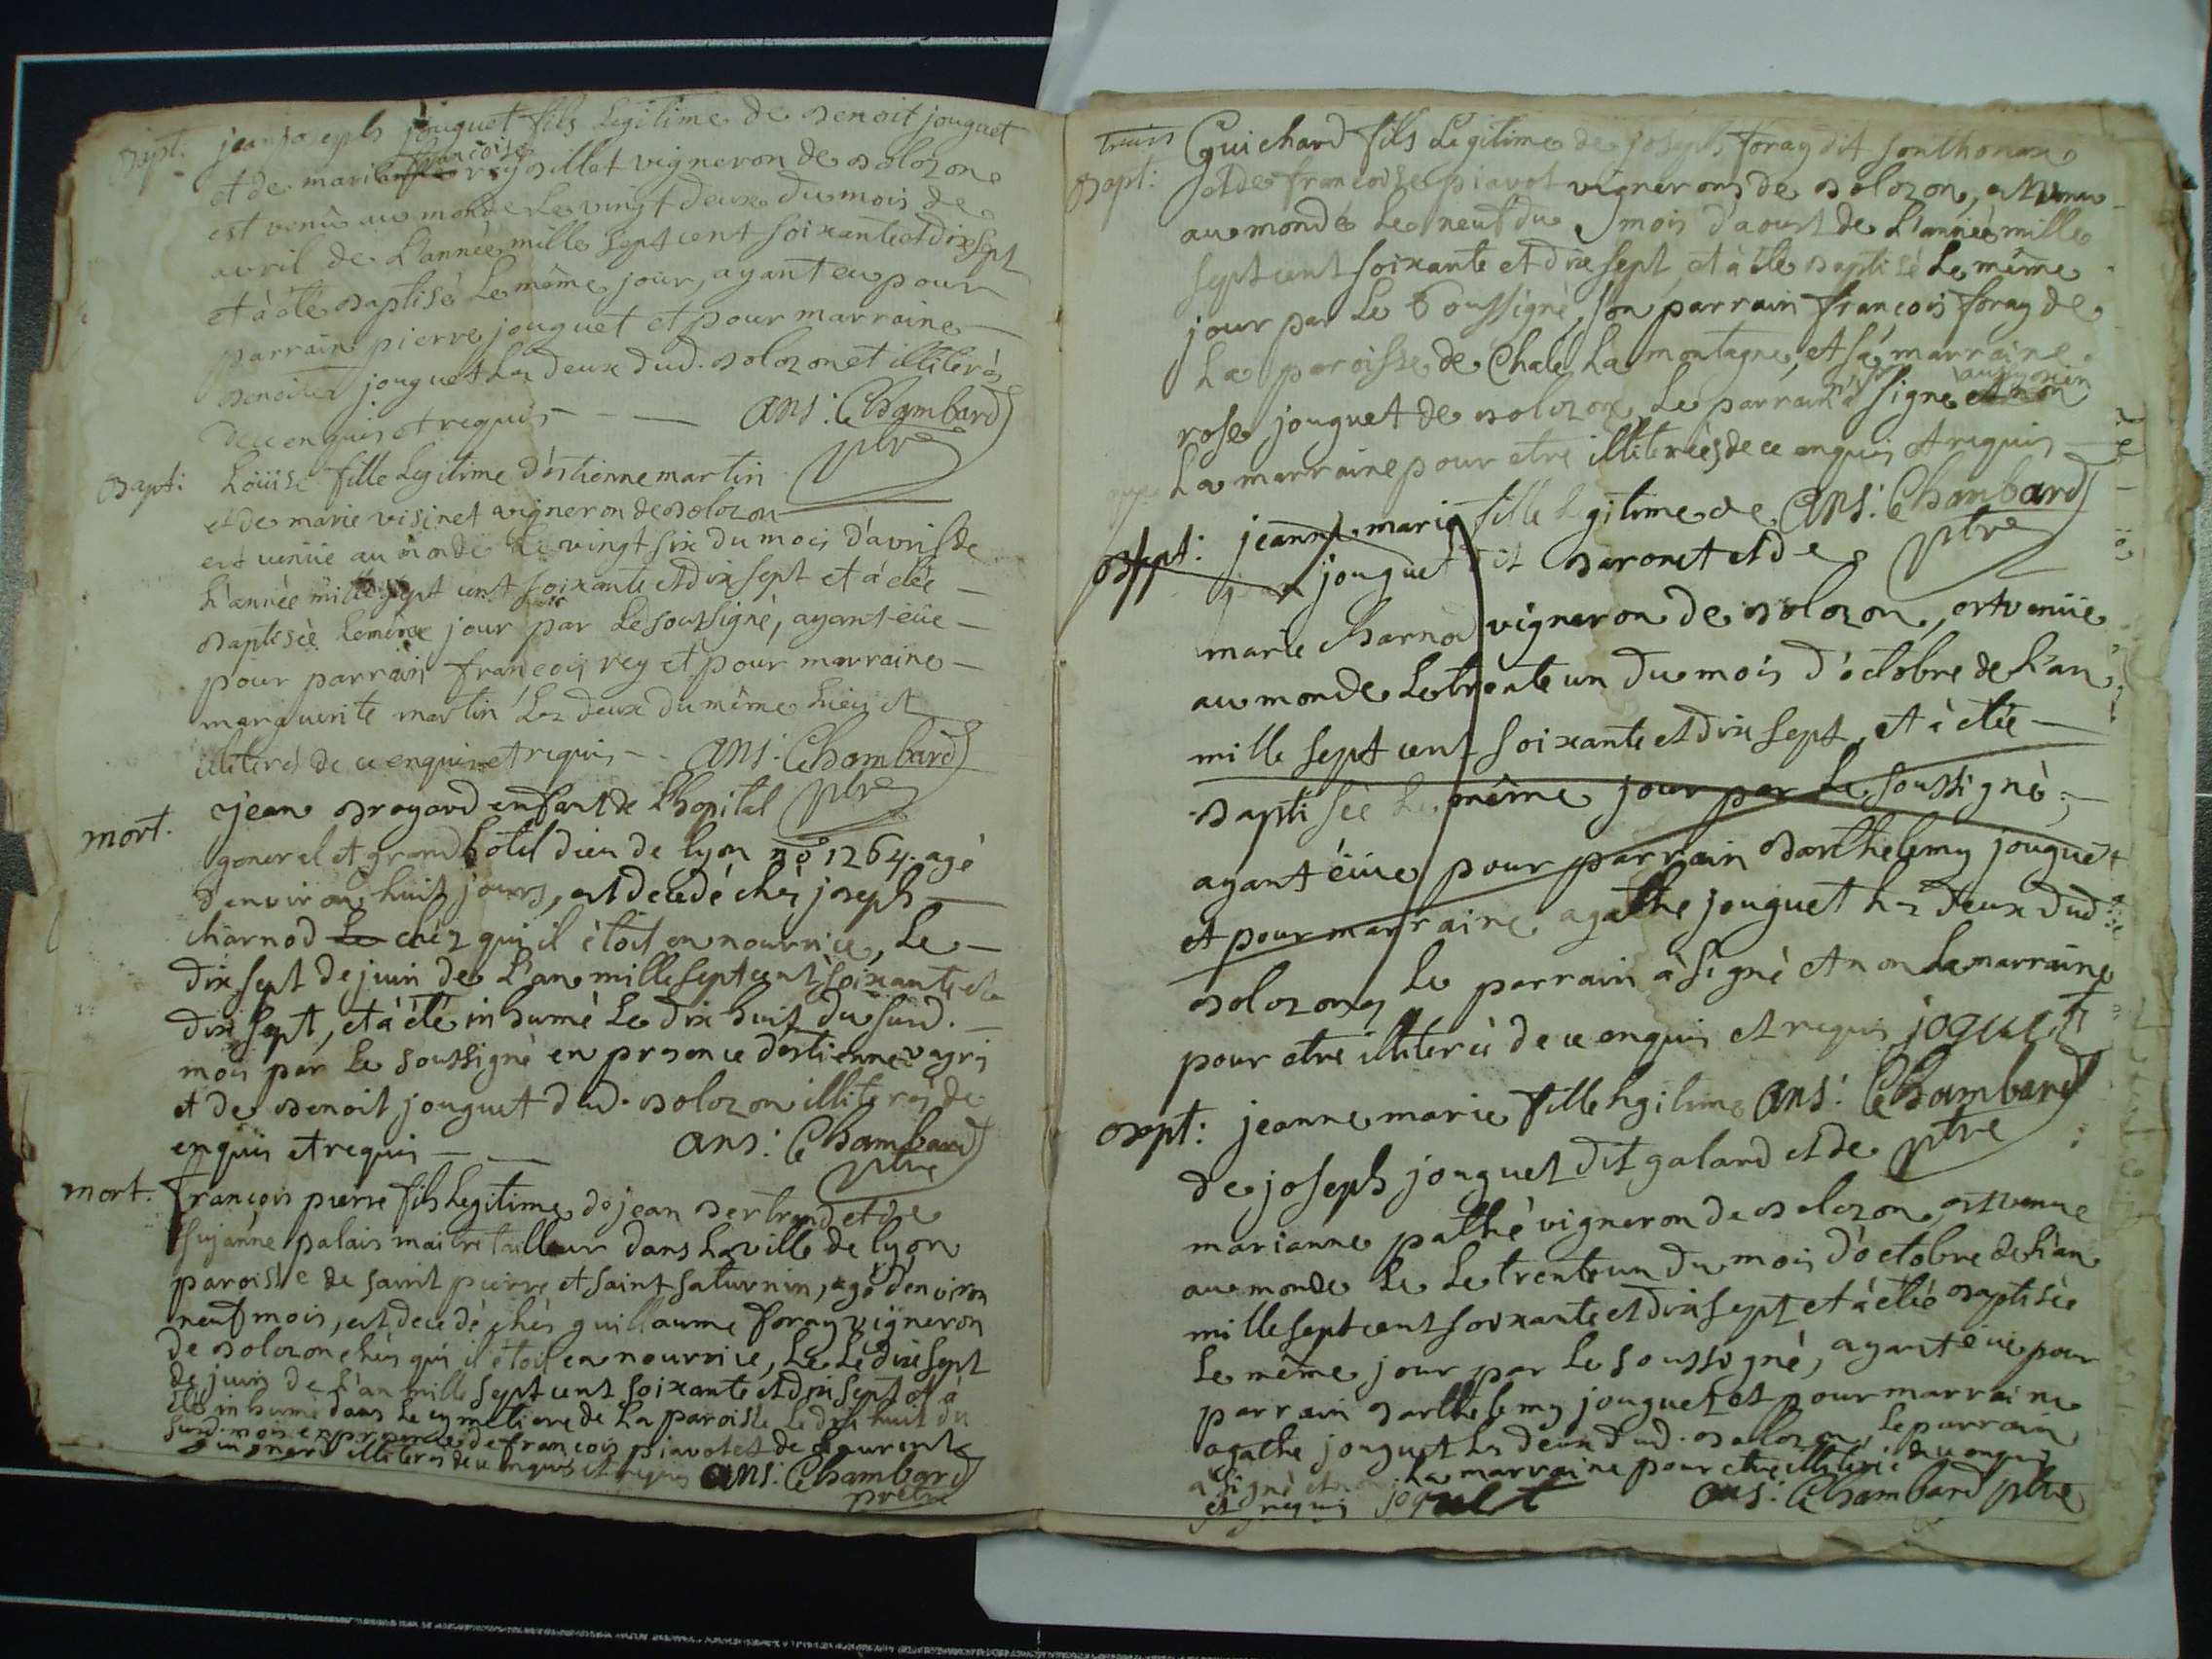 Bapt. jean joseph jouguet fils Legitime de Benoit jouguet
et de marie françoise rey billet vigneron de Bolozon
est venû au monde Le vingt deux du mois de
avril de L'année mille sept cent soixante et dix sept
et à été Baptisé Le même jour, ayant eu pour
parrain pierre jouguet et pour marraine
Benoite jouguet Les deux dud. Bolozon et illiterés
de ce enquis et requis - - ans: Chambard
ptre
Bapt: Loüise fille Legitime d'éstienne martin
et de marie visinet vigneron de Bolozon
est venüe au monde Le vingt six du mois d'avril de
L'année mille sept cent soixante et dix sept et à étée
Baptisée Le même jour par Le soussigné, ayant eüe
pour parrain françois rey et pour marraine
marguerite martin Les deux du même Lieu et
illiterés de ce enquis et requis - - ans: Chambard
ptre
mort. jean Bragard enfant de L'hopital
general et grand hôtel dieu de lyon no 1264. agé
d'environ huit jours, est decedé chéz joseph
charnod Le chéz qui il étoit en nourrice, Le
dix sept de juin de L'an mille sept cent soixante et
dix sept, et à été inhumé Le dix huit du susd.
mois par Le soussigné en presence d'estienne vagri
et de Benoit jouguet dud. Bolozon illiterés de
enquis et requis - - ans: Chambard
ptre
mort. françois pierre fils Legitime de jean Bertrand et de
susanne palais maitre tailleur dans La ville de lyon
paroisse de saint pierre et saint saturnin, agé d'environ
neuf mois, est decedé chés guillaume foray vigneron
de Bolozon chés qui il étoit en nourrice, Le Le dix sept
de juin de L'an mille sept cent soixante et dix sept et à
été inhumé dans Le cymetiere de La paroisse Le dix huit du
susd. mois en presence de françois piavot et de Laurent
illiterés de ce enquis et requis ans: Chambard
prêtre
Bapt: Guichard fils Legitime de joseph foray dit
et de françoise piavot vignerons de Bolozon, est venu
au monde Le neuf du mois d'aoust de L'année mille
sept cent soixante et dix sept, et à été Baptisé Le même
jour par Le soussigné, son parrain françois foray de
La paroisse de Chale La montagne, et sa marraine
rose jouguet de Bolozon, Le parrain signe et non
La marraine pour etre illiterées de ce enquis et requis
ans: Chambard
ptre
Bapt: jeanne marie fille Legitime de
jouguet dit Baronet et de
marie charnod vigneron de Bolozon, est venüe
au monde Le trente un du mois d'octobre de L'an
mille sept cent soixante et dix sept, et à étée
Baptisée Le même jour par Le soussigné,
ayant eüe pour parrain Barthelemy jouguet
et pour marraine agathe jouguet Les deux dud.
Bolozon, Le parrain à signé et non La marraine
pour etre illiterée de ce enquis et requis joguet
ans: Chambard
ptre
Bapt: jeanne marie fille Legitime
de joseph jouguet dit galand et de
marianne pathé vigneron de Bolozon, est venue
au monde Le Le trente un du mois d'octobre de L'an
mille sept cent soixante et dix sept et à étée Baptisée
Le même jour par Le soussigné, ayant eüe pour
parrain Barthelemy jouguet et pour marraine
agathe jouguet Les deux dud. Bolozon, Le parrain
a signé et non La marraine pour etre illiterée de ce enquis
et requis joguet ans: Chambard ptre